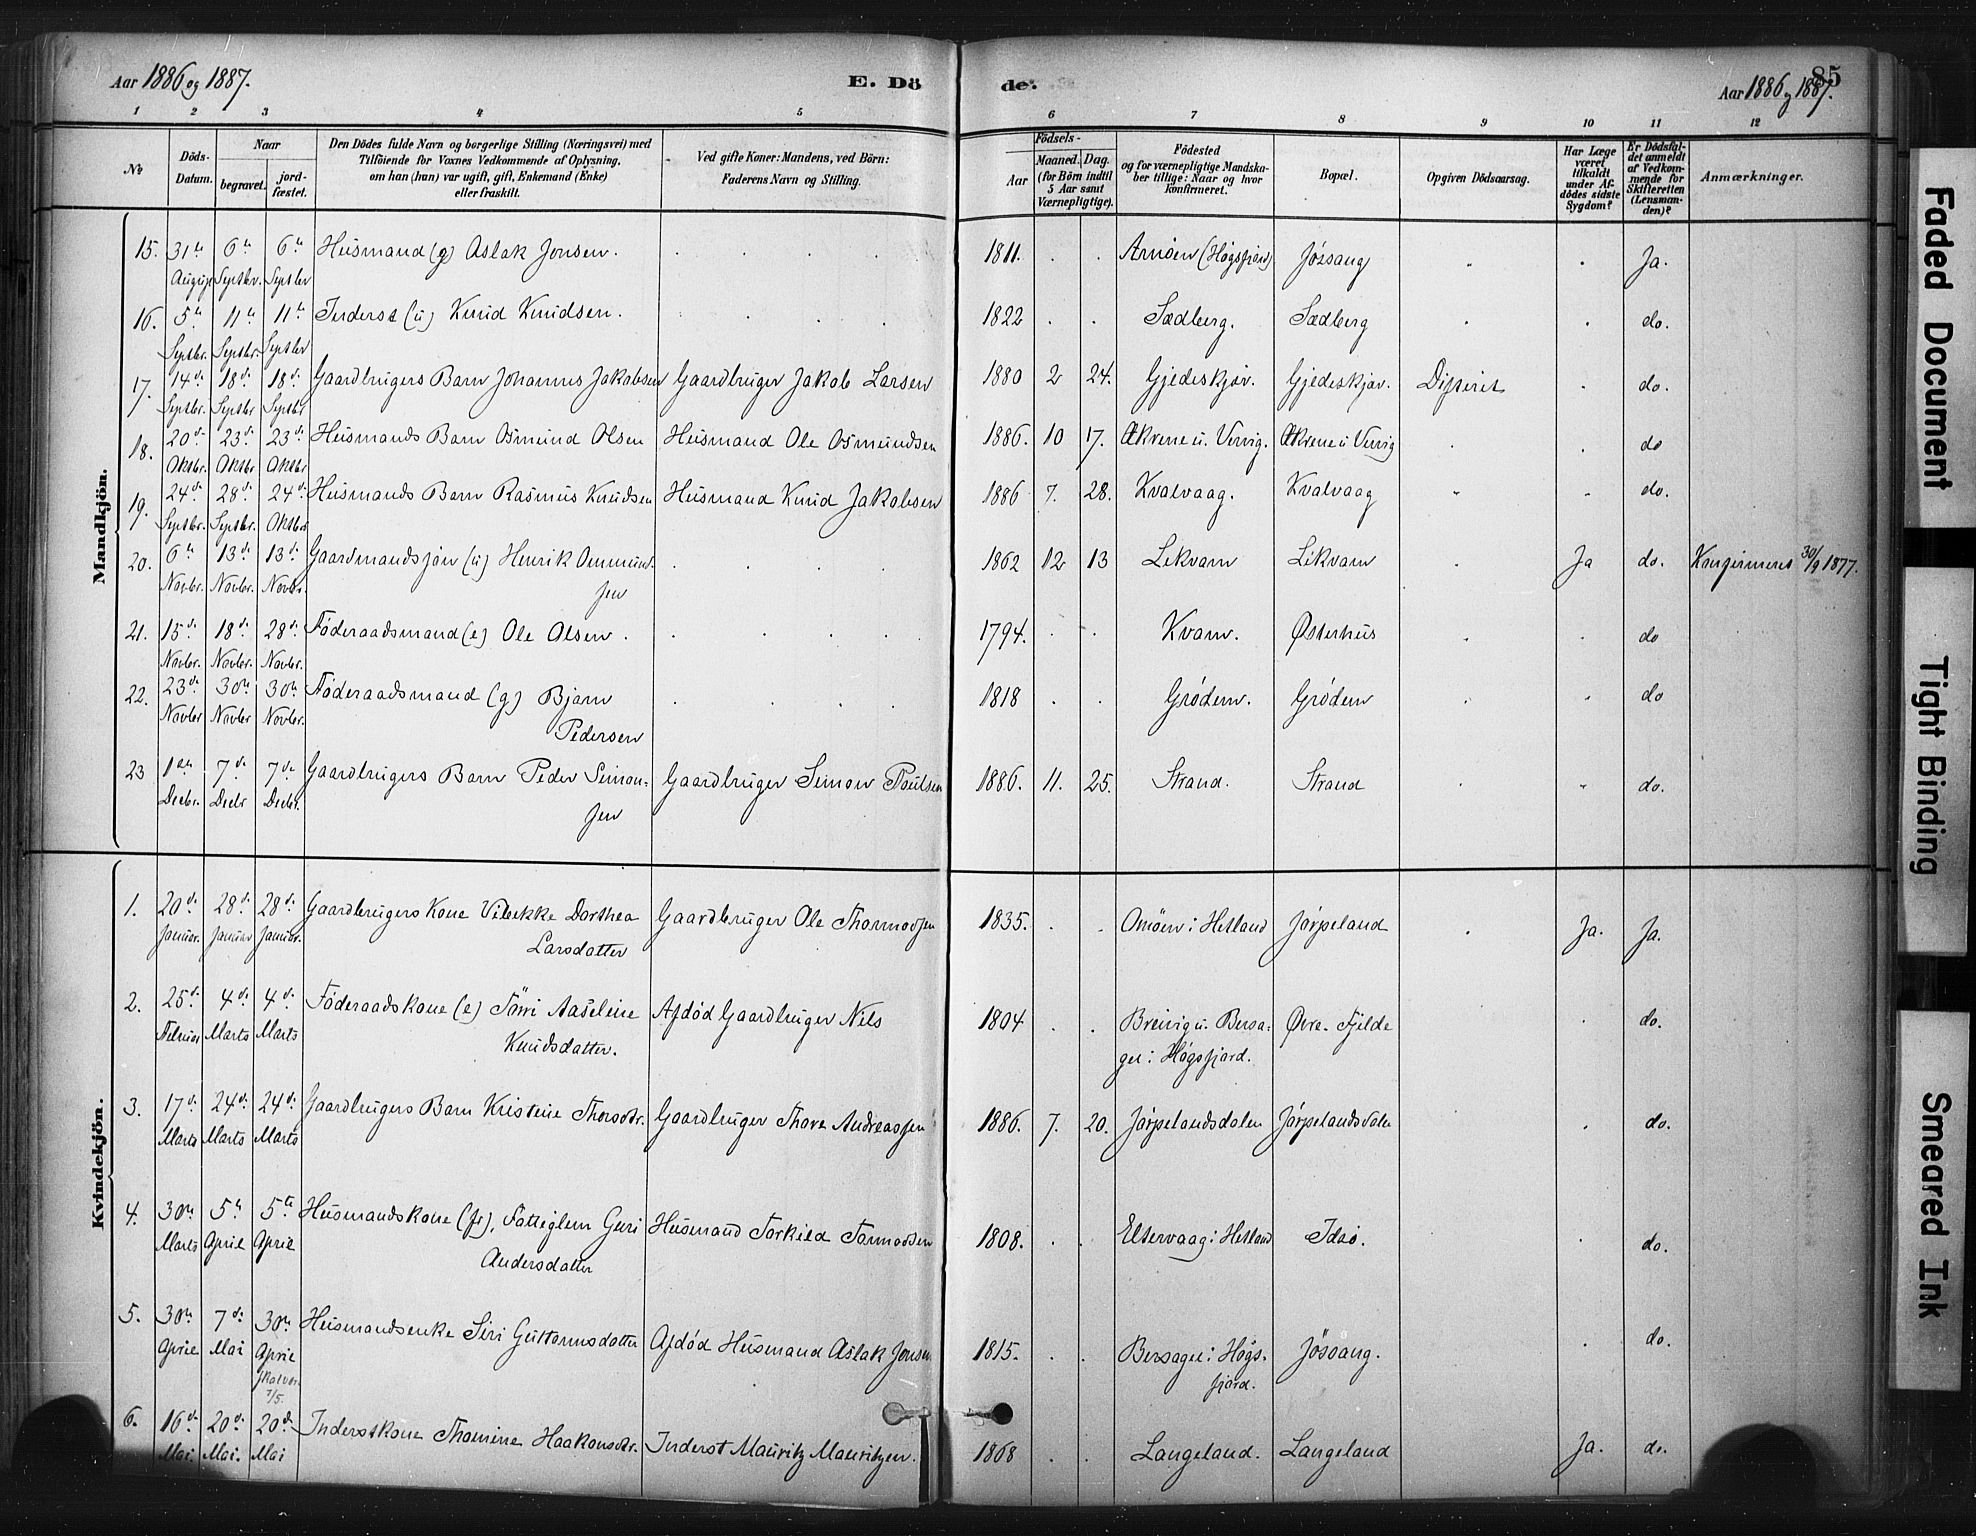 Aar 1886 og 1887.
E. Dö
de.
85
Aar 1886 og 1887.
1 2 3 4 5 6 7 8 9 10 11 12
No
Döds-Datum.
Naar
begravet.
jord-fæstet.
Den Dödes fulde Navn og borgerlige Stilling (Næringsvei) med
Tilföiende for Voxnes Vedkommende af Oplysning,
om han (hun) var ugift, gift, Enkemand (Enke)
eller fraskilt.
Ved gifte Koner: Mandens, ved Börn:
Faderens Navn og Stilling.
Födsels-
Aar
Maaned. Dag.
(for Börn indtil
5 Aar samt
Værnepligtige).
Födested
og for værnepligtige Mandska-
ber tillige: Naar og hvor
konfirmeret.
Bopæl.
Opgiven Dödsaarsag.
Har Læge
været
tilkaldt
under Af-
dödes sidste
Sygdom?
Er Dödsfal-
det anmeldt
af Vedkom-
mende for
Skifteretten
(Lensman-
den)?
Anmærkninger.
Mandkjön.
15. 31te August 6te Septbr. 6te Septbr Husmand (g) Aslak Jonsen. 1811. Arnöen (Högsfjord) Jössang Ja.
16. 5te Septbr. 11te Septbr. 11te Septbr Inderst (u) Knud Knudsen. 1822 Sædberg. Sædberg do.
17. 14de Septbr. 18de Septbr 18de Septbr Gaardbrugers Barn Johannes Jakobsen Gaardbruger Jakob Larsen 1880 2 24. Gjedeskjær. Gjedeskjær. Difterit do.
18. 20de Oktbr. 23de Oktbr 23de Oktbr Husmands Barn Osmund Olsen Husmand Ole Osmundsen 1886. 10 17. u. u. do
19. 24de Septbr. 28de Septbr. 24de Oktbr Husmands Barn Rasmus Knudsen Husmand Knud Jakobsen 1886 7. 28. Kvalvaag. Kvalvaag do.
20. 6te Novbr. 13de Novbr. 13de Novbr. Gaardmandssön (u) Henrik Ommund-
sen 1862 12 13 Lekvam Lekvam Ja do. Konfirmeret 30/9 1877.
21. 15de Novbr. 18de Novbr. 28de Novbr. Föderaadsmand (e) Ole Olsen. 1794. Kvam. Østerhus do
22. 23de Novbr 30te Novbr 30te Novbr. Föderaadsmand (g) Bjørn
Pedersen 1818 Grödem. Grödem do
23 1ste Decbr. 7de Decbr 7de Decbr. Gaardbrugers Barn Peder Simon-
sen Gaardbruger Simon Poulsen 1886. 11. 25. Strand. Strand do.
Kvindekjön.
1. 20de Januar. 28de Januar 28de Januar. Gaardbrugers Kone Vibekke Dorthea
Larsdatter Gaardbruger Ole Thormodsen 1835. Omöen i Hetland Jörpeland Ja. Ja.
2. 25de Februar 4de Marts 4de Marts Föderaadskone (e) Aaseleine
Knudsdatter. Afdöd Gaardbruger Nils 1804 Breivig u. Bersa-
gel i Högsfjord. Øvre-Fjelde do.
3. 17de Marts 24de Marts 24de Marts Gaardbrugers Barn Kristine Thorsdtr. Gaardbruger Thore Andreassen 1886. 7. 20. Jörpelandsdalen Jörpelandsdalen do.
4. 30te Marts 5te April 5te April Husmandskone (g), Fattiglem Guri
Andersdatter Husmand Torkild Tormodsen 1808. Eltervaag i Hetland Idsö. do.
5. 30te April 7de Mai 30te April
7/5. Husmandsenke Siri Guttormsdatter Afdöd Husmand Aslak Jonsen 1815. Bersagel i Högs-
fjord. Jössang. do.
6. 16de Mai. 20de Mai. 20de Mai Inderstkone Thomine Haakonsdtr. Inderst Mauritz Mauritzen. 1868 Langeland. Langeland Ja. do.
Faded Document
Tight Binding
Smeared Ink